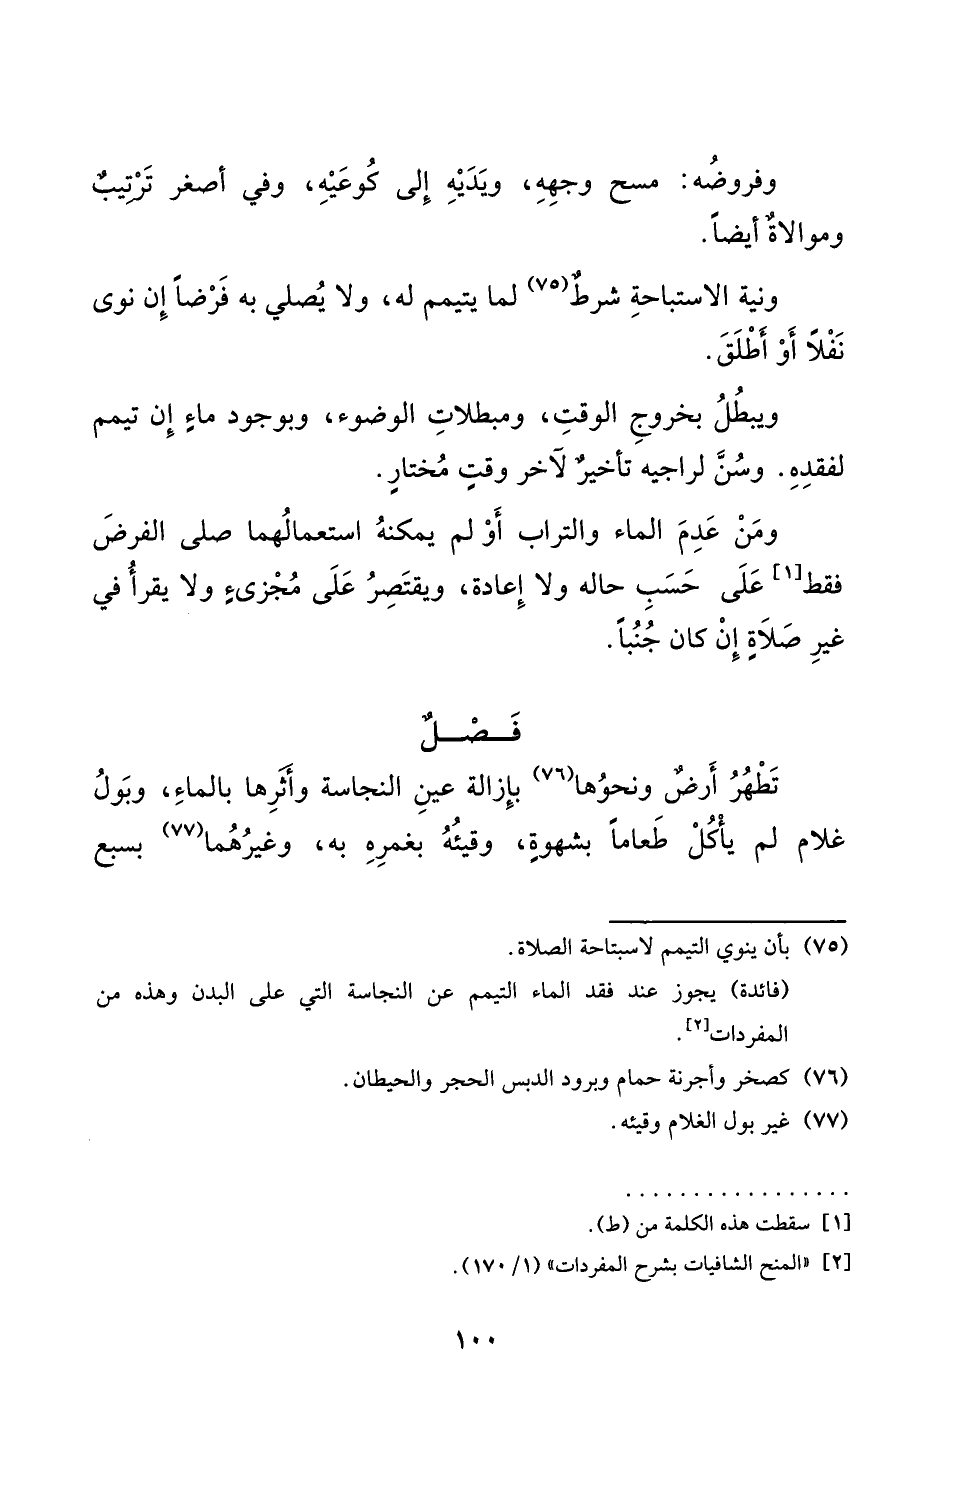 وفروضُه: مسح وجهِهِ، ويَدَيْهِ إلى كُوعَيْهِ، وفي أصغر تَرْتِيبٌ
وموالاةٌ أيضاً.
ونية الاستباحةِ شرطٌ(٧٥) لما يتيمم له، ولا يُصلي به فَرْضاً إن نوى
نَفْلاً أَوْ أَطْلَقَ.
ويبطُلُ بخروجِ الوقتِ، ومبطلاتِ الوضوء، وبوجود ماءٍ إن تيمم
لفقدِهِ. وسُنَّ لراجيه تأخيرٌ لآخر وقتٍ مُختارٍ.
ومَنْ عَدِمَ الماء والتراب أَوْ لم يمكنهُ استعمالُهما صلى الفرضَ
فقط[١] عَلَى حَسَبِ حاله ولا إعادة، ويقتَصِرُ عَلَى مُجْزىءٍ ولا يقرأُ في
غيرِ صَلَاةٍ إنْ كان جُنُباً.
فَـصْـلٌ
تَطْهُرُ أَرضٌ ونحوُها(٧٦) بإزالة عينِ النجاسة وأَثَرِها بالماءِ، وبَولُ
غلام لم يأْكُلْ طَعاماً بشهوةٍ، وقيئُهُ بغمرِهِ به، وغيرُهُما(٧٧) بسبع
(٧٥) بأن ينوي التيمم لاسبتاحة الصلاة.
(فائدة) يجوز عند فقد الماء التيمم عن النجاسة التي على البدن وهذه من
المفردات[٢].
(٧٦) كصخر وأجرنة حمام وبرود الدبس الحجر والحيطان.
(٧٧) غير بول الغلام وقيئه.
. . . . . . . . . . . . . . . . .
[١] سقطت هذه الكلمة من (ط).
[٢] «المنح الشافيات بشرح المفردات» (١/ ١٧٠).
١٠٠